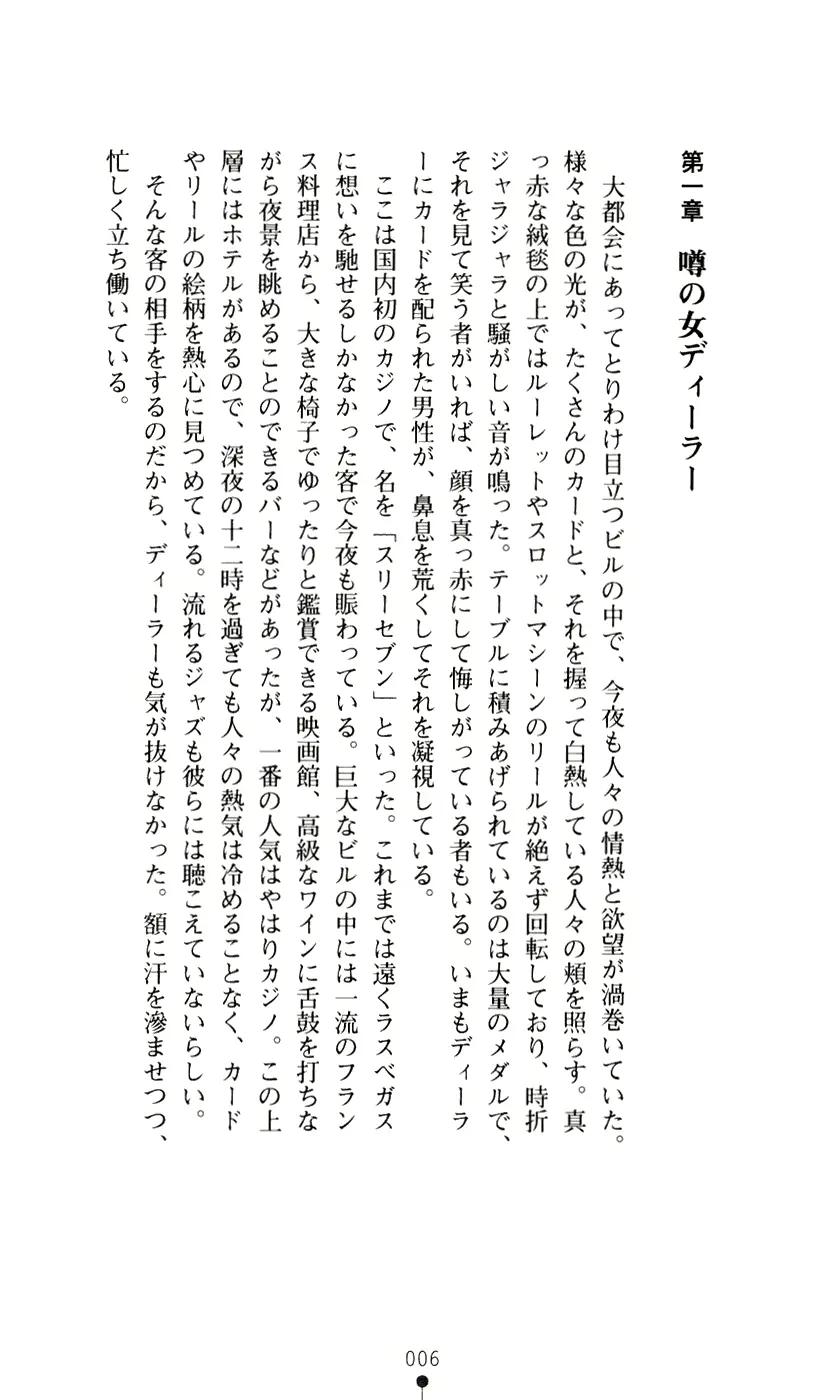 第一章　噂の女ディーラー
　大都会にあってとりわけ目立つビルの中で、今夜も人々の情熱と欲望が渦巻いていた。
様々な色の光が、たくさんのカードと、それを握って白熱している人々の頬を照らす。真
っ赤な絨毯の上ではルーレットやスロットマシーンのリールが絶えず回転しており、時折
ジャラジャラと騒がしい音が鳴った。テーブルに積みあげられているのは大量のメダルで、
それを見て笑う者がいれば、顔を真っ赤にして悔しがっている者もいる。いまもディーラ
ーにカードを配られた男性が、鼻息を荒くしてそれを凝視している。
　ここは国内初のカジノで、名を「スリーセブン」といった。これまでは遠くラスベガス
に想いを馳せるしかなかった客で今夜も賑わっている。巨大なビルの中には一流のフラン
ス料理店から、大きな椅子でゆったりと鑑賞できる映画館、高級なワインに舌鼓を打ちな
がら夜景を眺めることのできるバーなどがあったが、一番の人気はやはりカジノ。この上
層にはホテルがあるので、深夜の十二時を過ぎても人々の熱気は冷めることなく、カード
やリールの絵柄を熱心に見つめている。流れるジャズも彼らには聴こえていないらしい。
　そんな客の相手をするのだから、ディーラーも気が抜けなかった。額に汗を滲ませつつ、
忙しく立ち働いている。
006